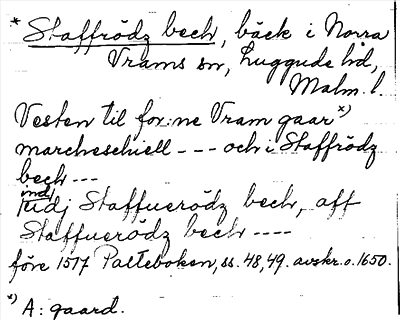 * Staffrödz bech, bäck i Norra
Vrams sn, Luggude hd,
Malm. l.
Vesten til for:ne Vram gaar x)
marcheschiell - - - och i Staffrödz
bech - - -
indj
iudj Staffuerödz bech, aff
Staffuerödz bech - - - -
före 1517 Palteboken, ss. 48, 49. avskr. o. 1650.
x) A: gaard.